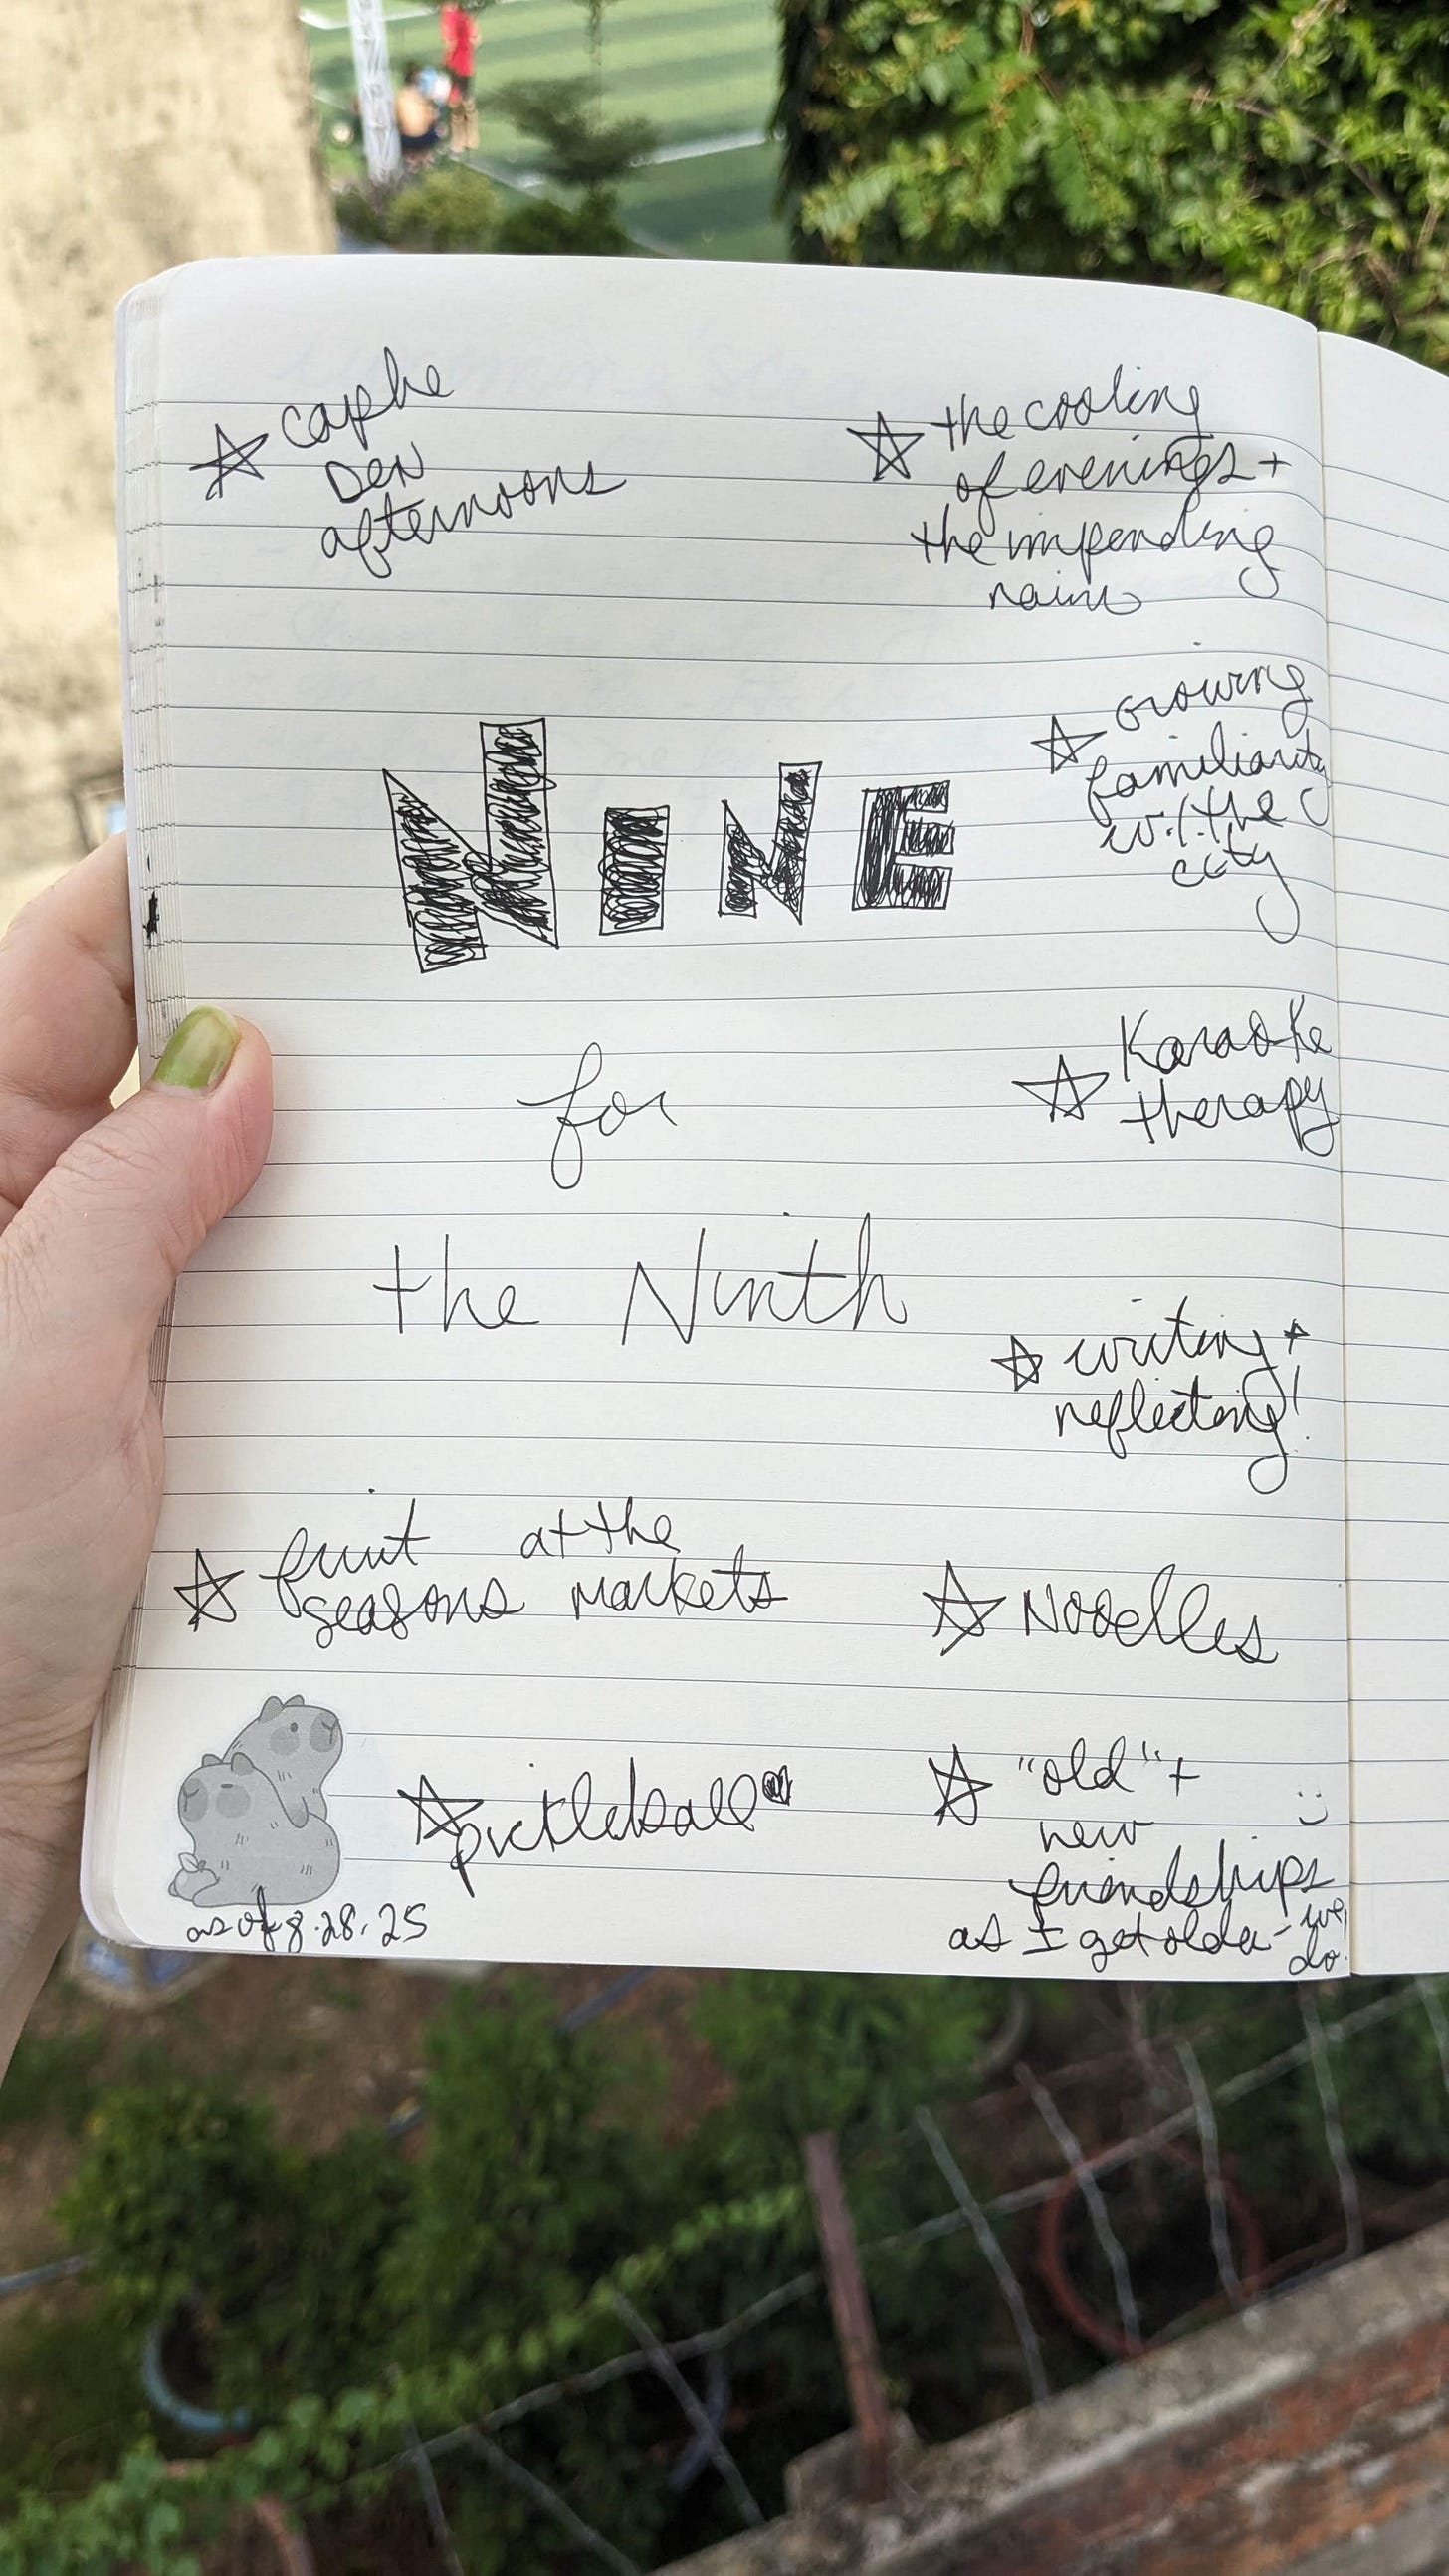 caphe
Den
afternoons
the cooling
of evenings +
the impending
rain
Growing
familiarity
w/ the
city
NINE
for
the Ninth
Karaoke
therapy
writing +
reflecting!
fruit at the
seasons markets
Noodles
pickleball
"old" +
new
friendships
as I get older - we
do.
as of 8.28.25